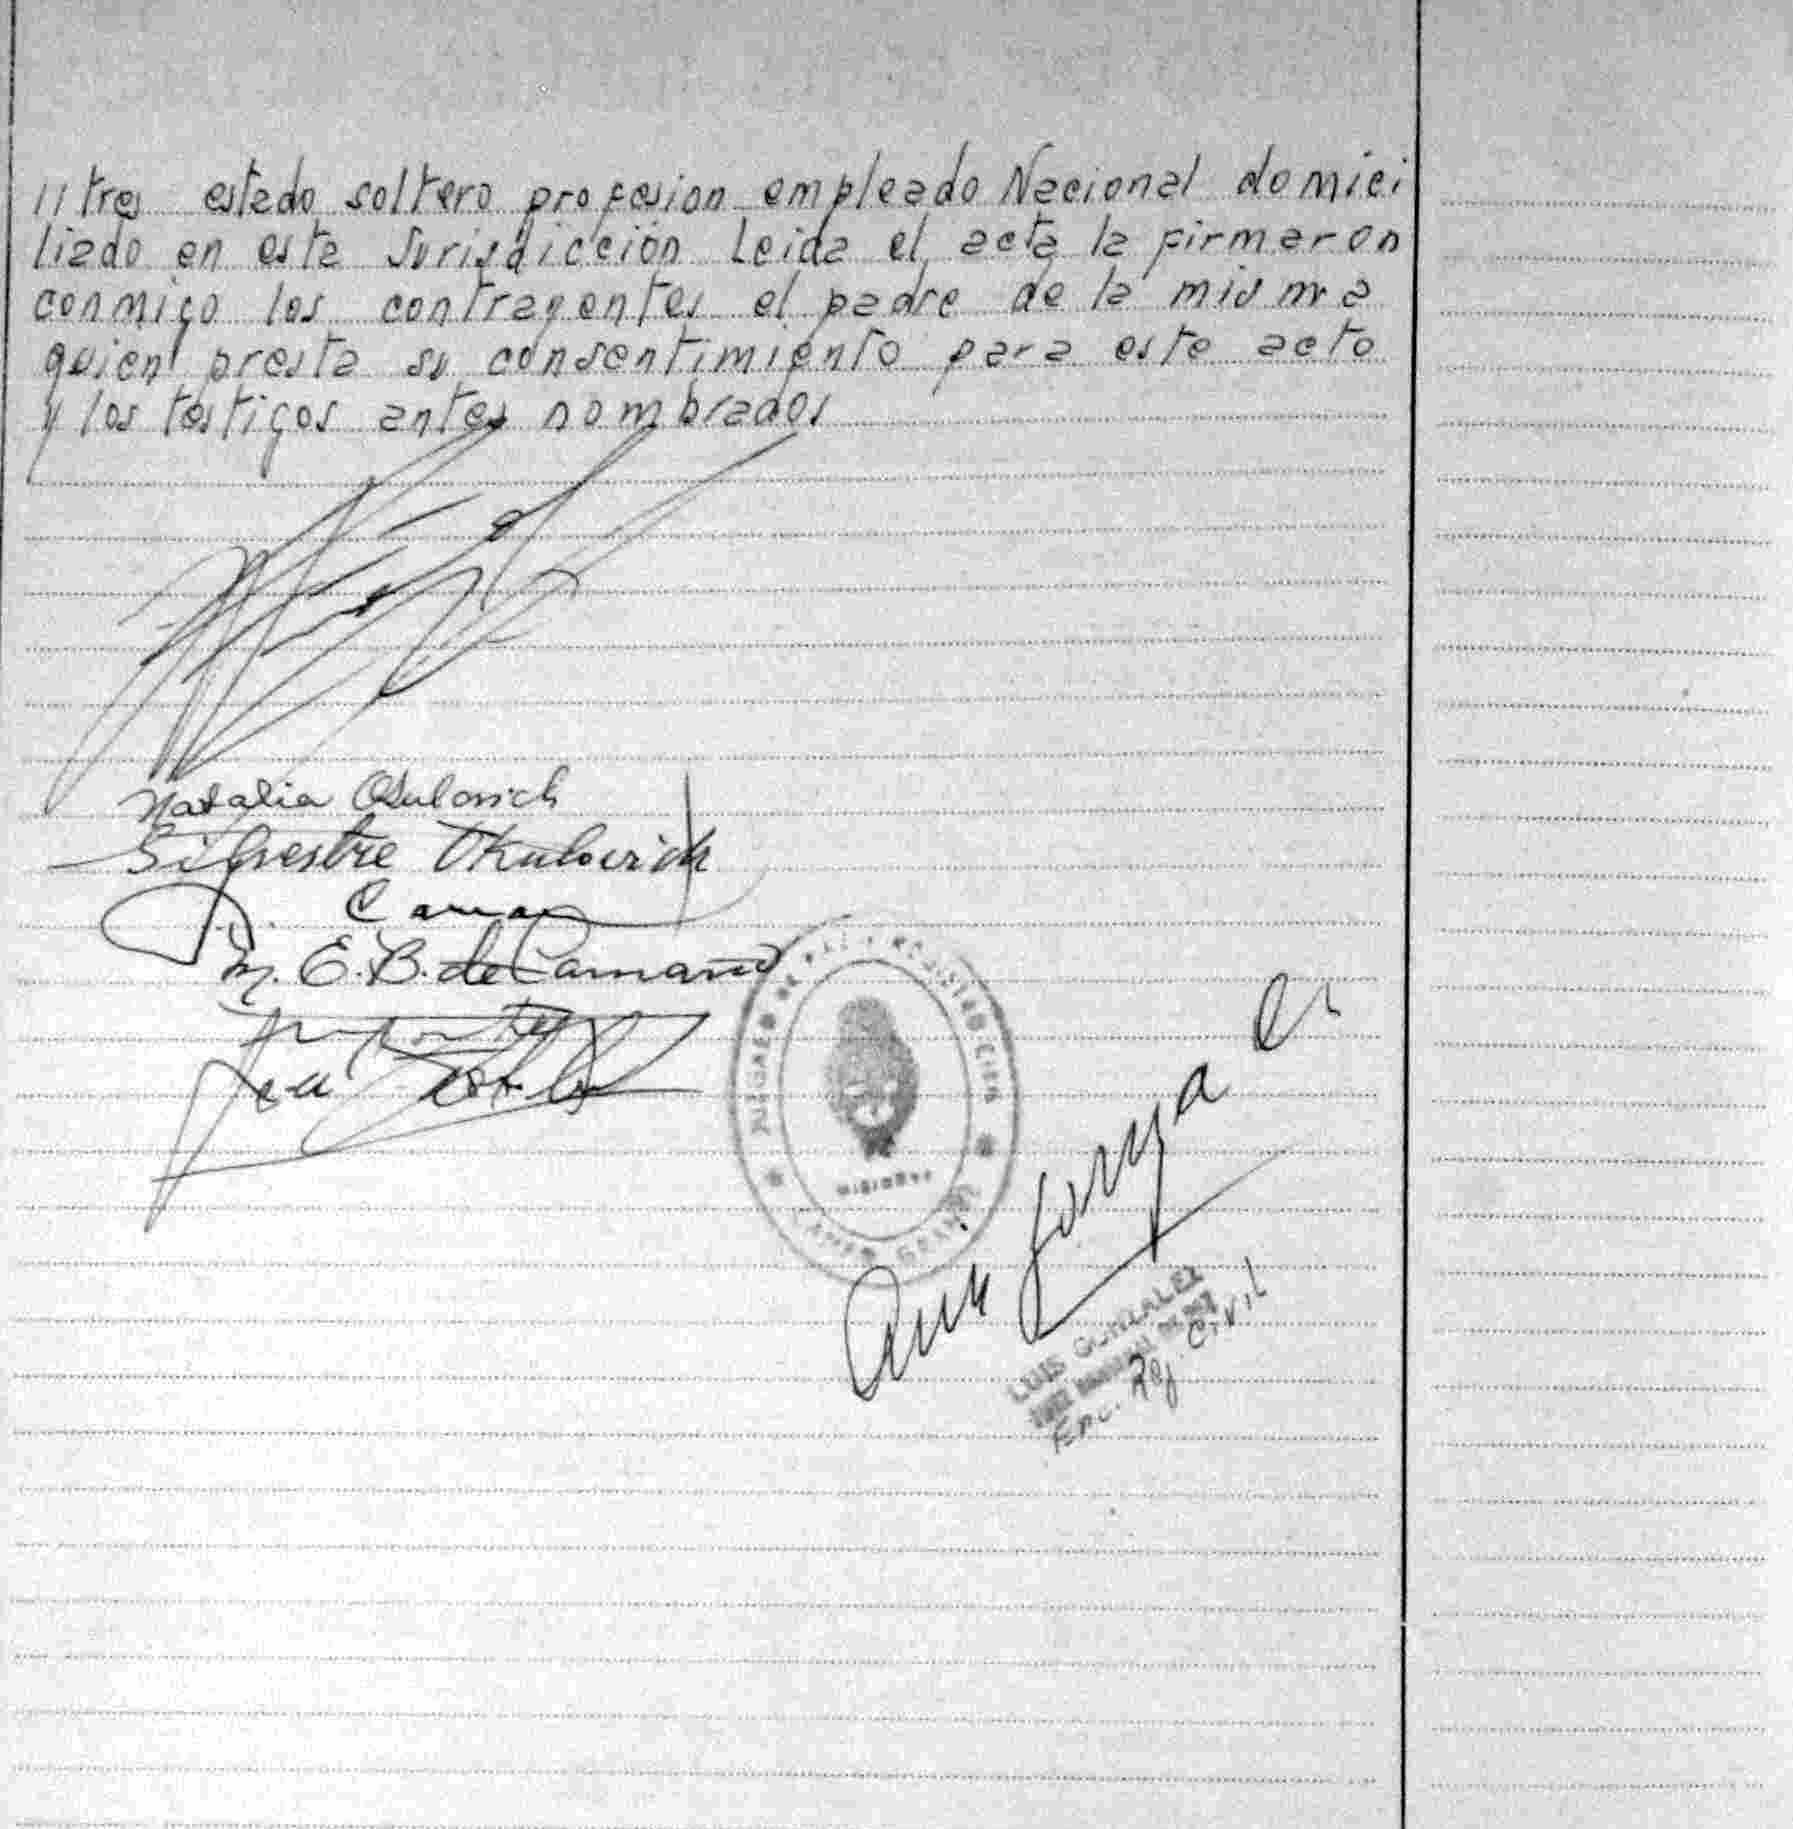 // tres estado soltero profesion empleado Nacional domici
liado en esta Jurisdicción Leida el acta la firmaron
conmigo los contrayentes el padre de la misma
quien presta su consentimiento para este acto
y los testigos antes nombrados
Natalia Okulovich
Silvestre Okulovich
M. E. B. de Camaño
JUZGADO DE PAZ Y REGISTRO CIVIL
MISIONES
LUIS GONZALEZ
Enc. Reg. Civil